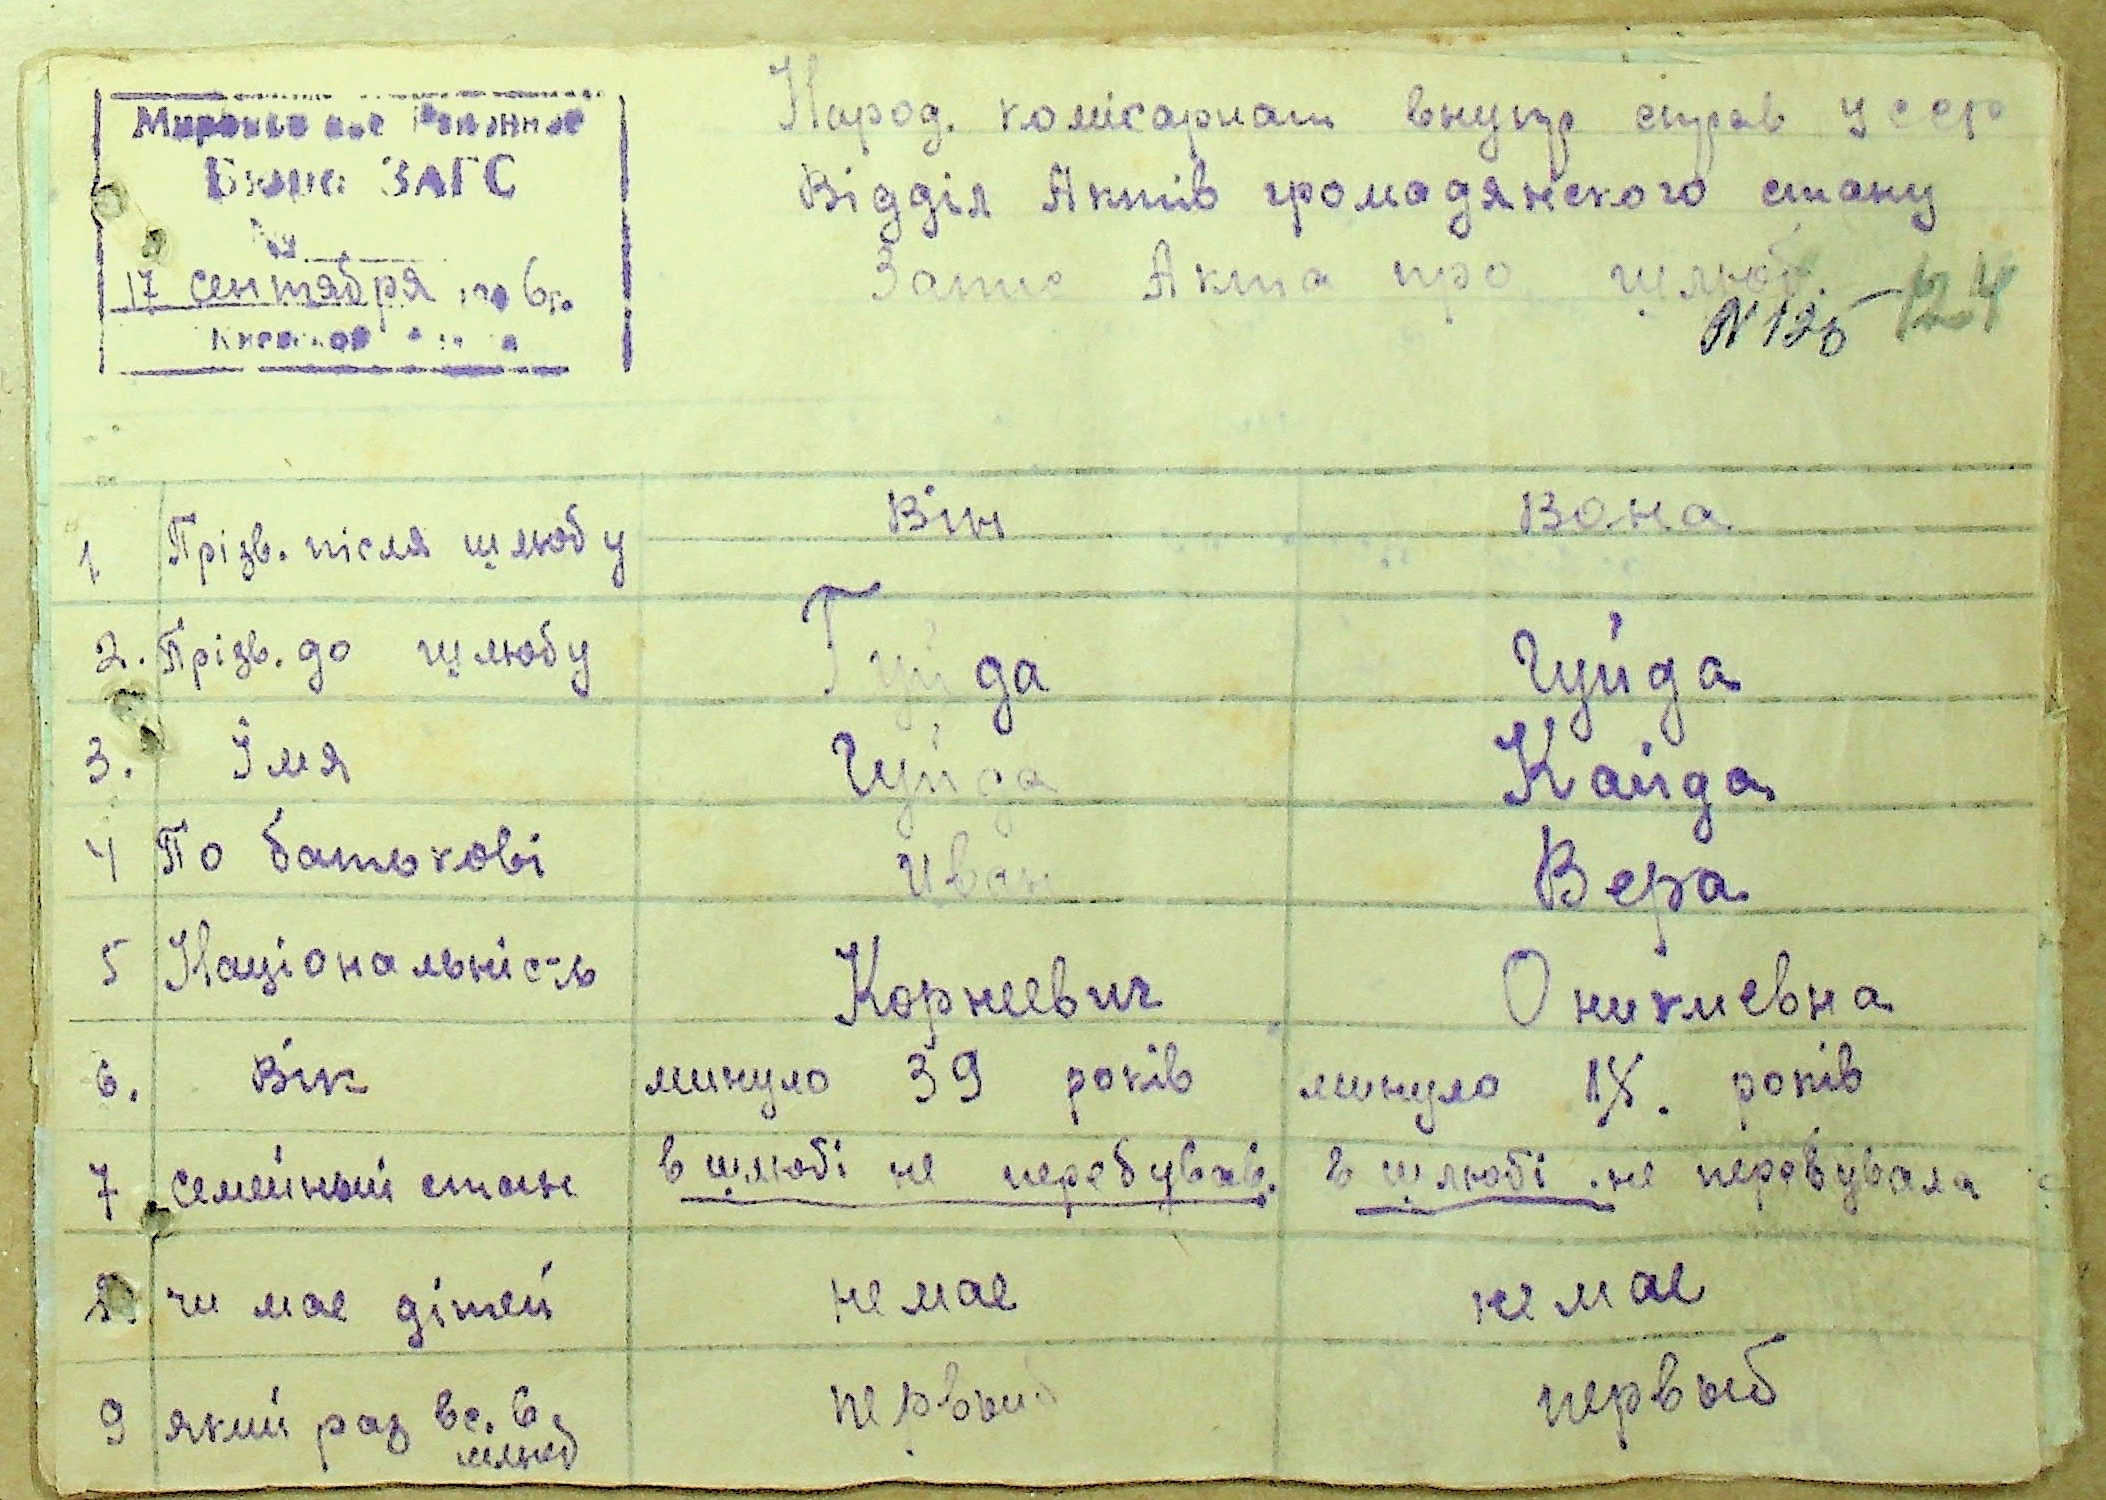 Бюро ЗАГС
№
17 сентября 6г.
Народ. комісариат внутр справ УССР
Відділ Актів громадянского стану
Запис Акта про шлюб.
N 125 124
Він Вона
1 Прізв. після шлюбу
Гуйда Гуйда
2. Прізв. до шлюбу
Гуйда Кайда
3. Їмя
Иван Вера
4 По батькові
5 Національність Корнеевич Оникиевна
6. Вік минуло 39 років минуло 18. років
7 семейный стан в шлюбі не перебував. в шлюбі не перебувала
8. чи мае дітей не мае не мае
9 який раз вс. в. первый первый
шлюб